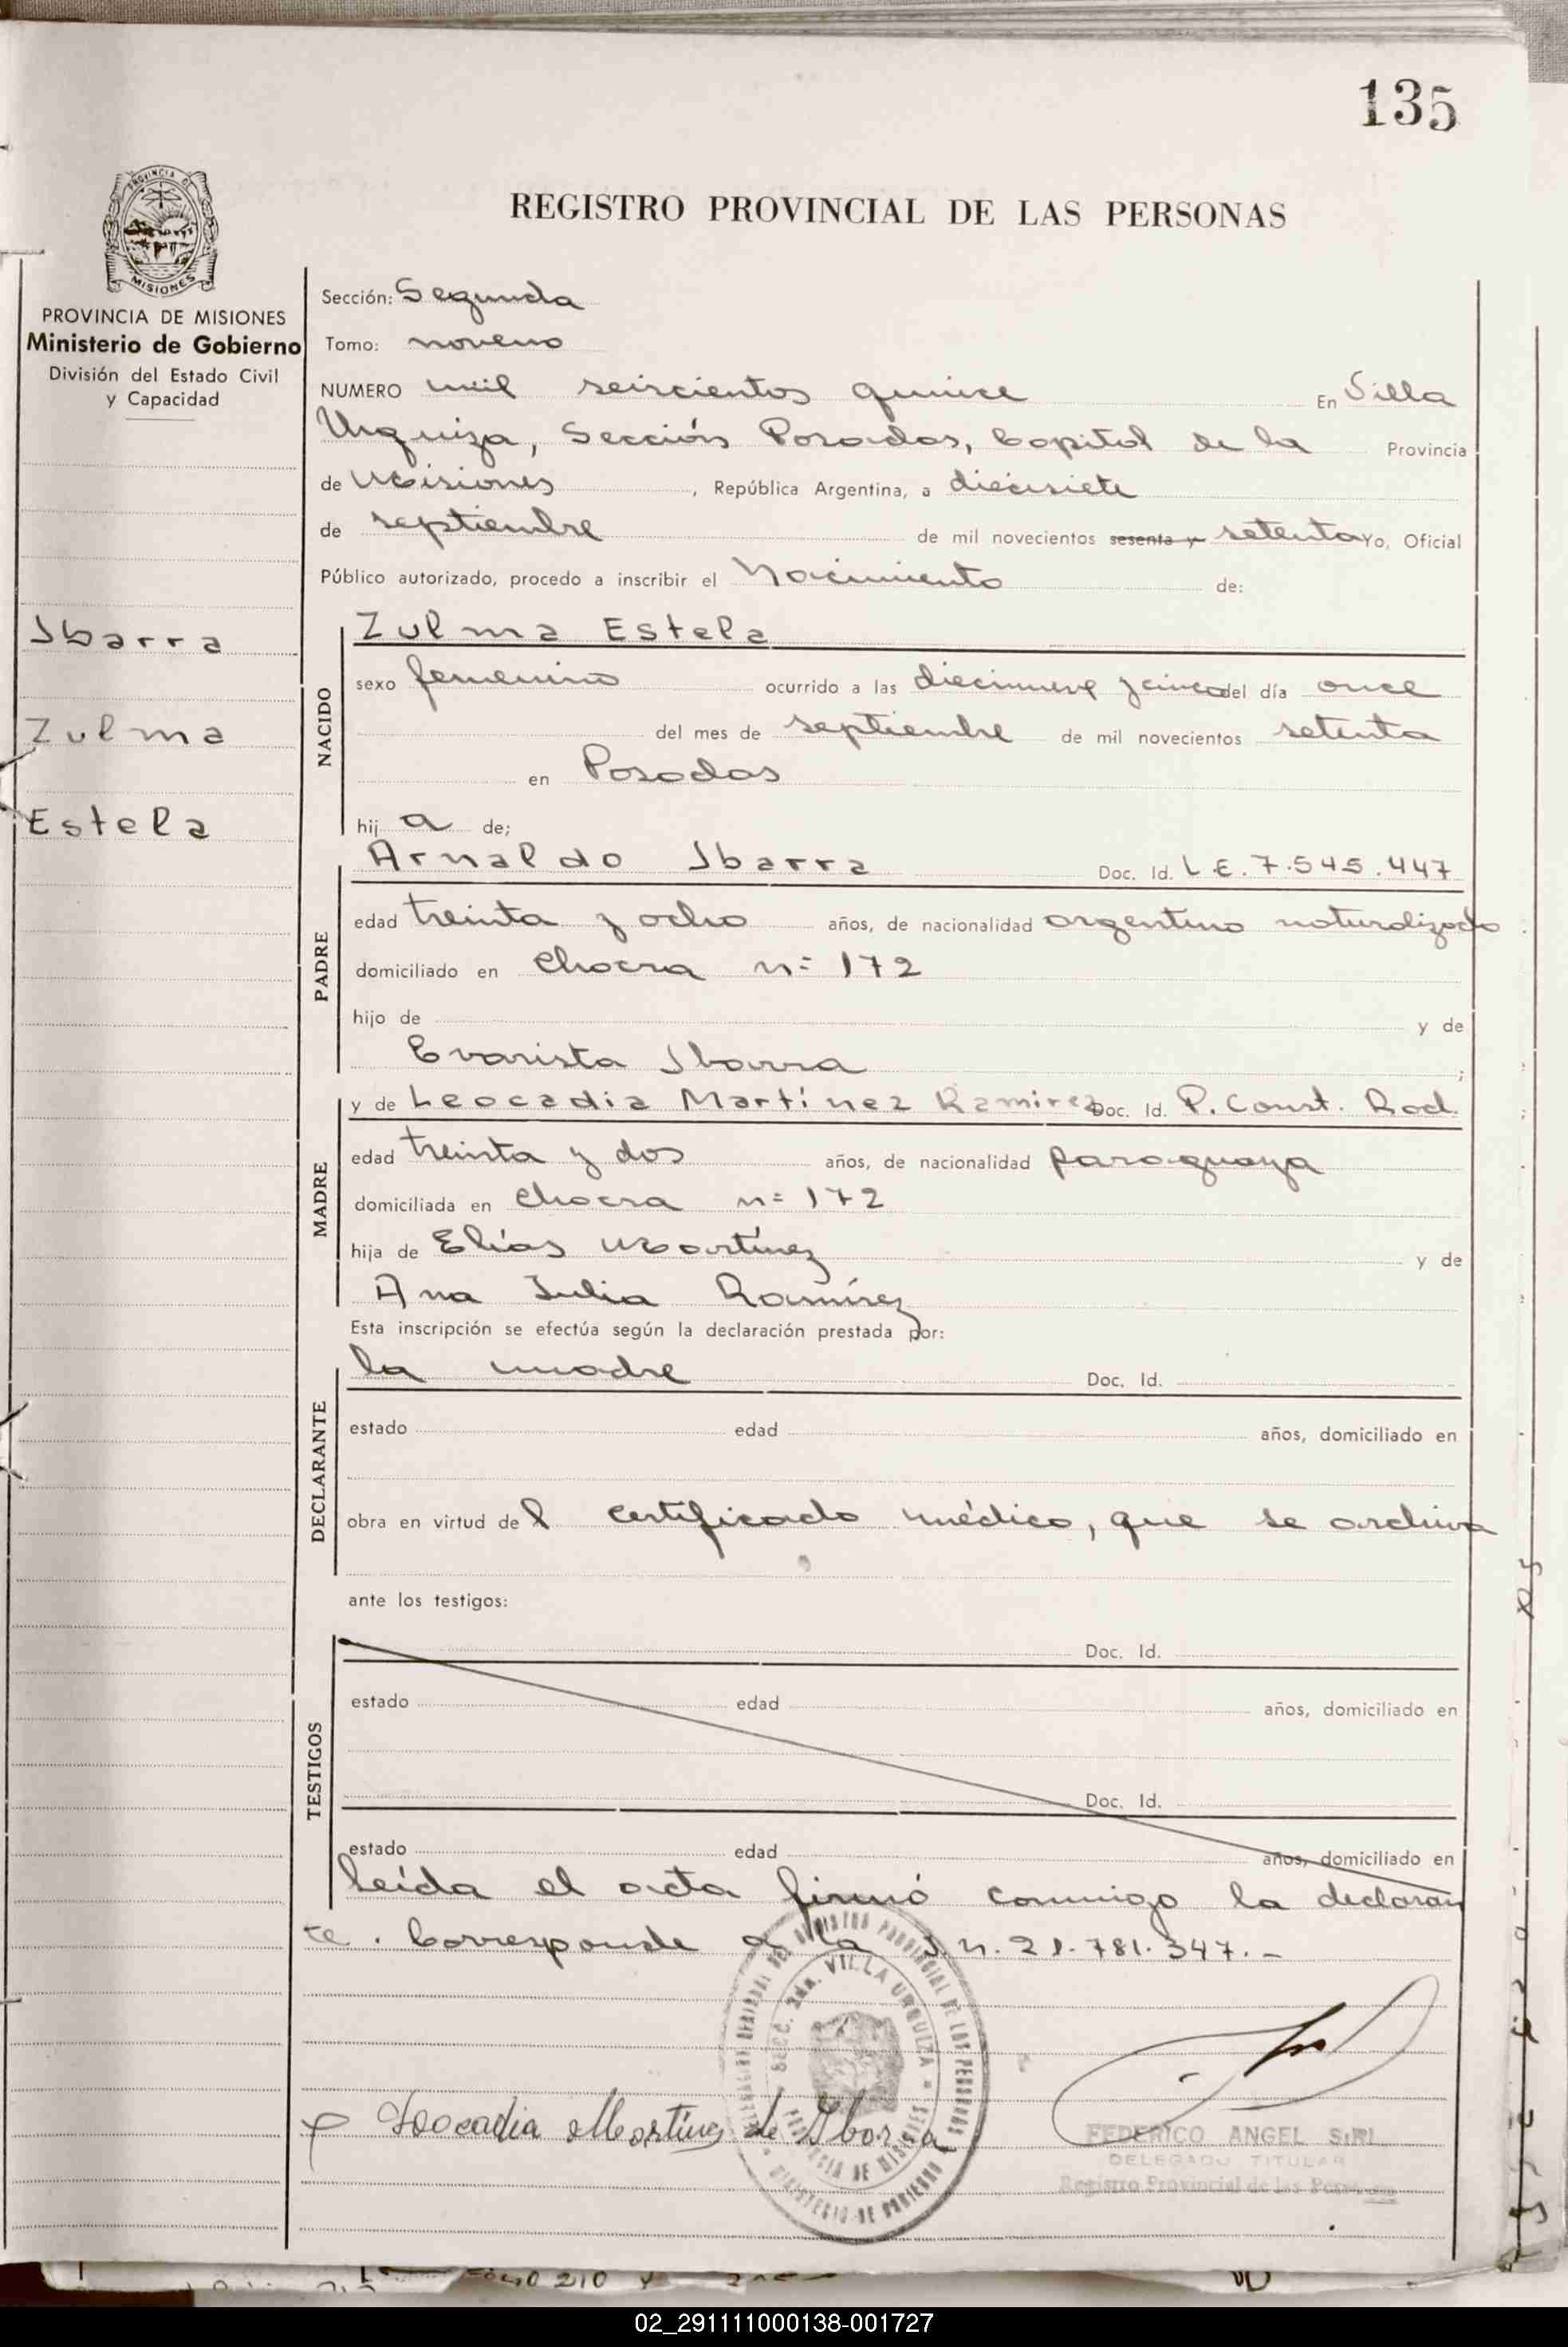 135
PROVINCIA DE
MISIONES
REGISTRO PROVINCIAL DE LAS PERSONAS
PROVINCIA DE MISIONES
Ministerio de Gobierno
División del Estado Civil
y Capacidad
Ibarra
Zulma
Estela
Sección: Segunda
Tomo: noveno
NUMERO mil seiscientos quince En Villa
Urquiza, Sección Posadas, Capital de la Provincia
de Misiones, República Argentina, a diecisiete
de septiembre de mil novecientos sesenta y setenta Yo, Oficial
Público autorizado, procedo a inscribir el Nacimiento de:
NACIDO
Zulma Estela
sexo femenino ocurrido a las diecinueve y cinco del día once
del mes de septiembre de mil novecientos setenta
en Posadas
hij a de;
PADRE
Arnaldo Ibarra Doc. Id. L.E. 7.545.447
edad treinta y ocho años, de nacionalidad argentino naturalizado
domiciliado en Chacra n= 172
hijo de y de
Evarista Ibarra ;
MADRE
y de Leocadia Martínez Ramírez Doc. Id. P. Const. Rad.
edad treinta y dos años, de nacionalidad paraguaya
domiciliada en Chacra n= 172
hija de Elías Martínez y de
Ana Julia Ramírez
Esta inscripción se efectúa según la declaración prestada por:
DECLARANTE
la madre Doc. Id.
estado edad años, domiciliado en
obra en virtud del certificado médico, que se archiva
ante los testigos:
TESTIGOS
Doc. Id.
estado edad años, domiciliado en
Doc. Id.
estado edad años, domiciliado en
Leída el acta firmó conmigo la declaran
te. Corresponde a la I.N. 21.781.347.-
SECC. 2da. VILLA URQUIZA
PROVINCIA DE MISIONES
MINISTERIO DE GOBIERNO
REGISTRO PROVINCIAL DE LAS PERSONAS
Leocadia Martínez de Ibarra
FEDERICO ANGEL SIRI
DELEGADO TITULAR
Registro Provincial de las Personas
02_291111000138-001727